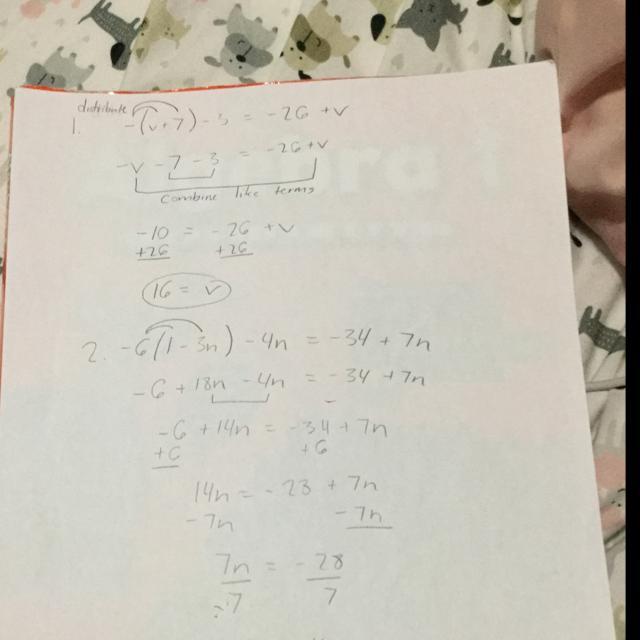 distribute
1. -(v+7)-3 = -26+v
-v -7 -3 = -26+v
combine like terms
-10 = -26 +v
+26 +26
16 = v
2. -6(1-3n) -4n = -34 + 7n
-6 +18n -4n = -34 +7n
-6 +14n = -34 + 7n
+6 +6
14n = -28 + 7n
-7n -7n
7n = -28
7 7